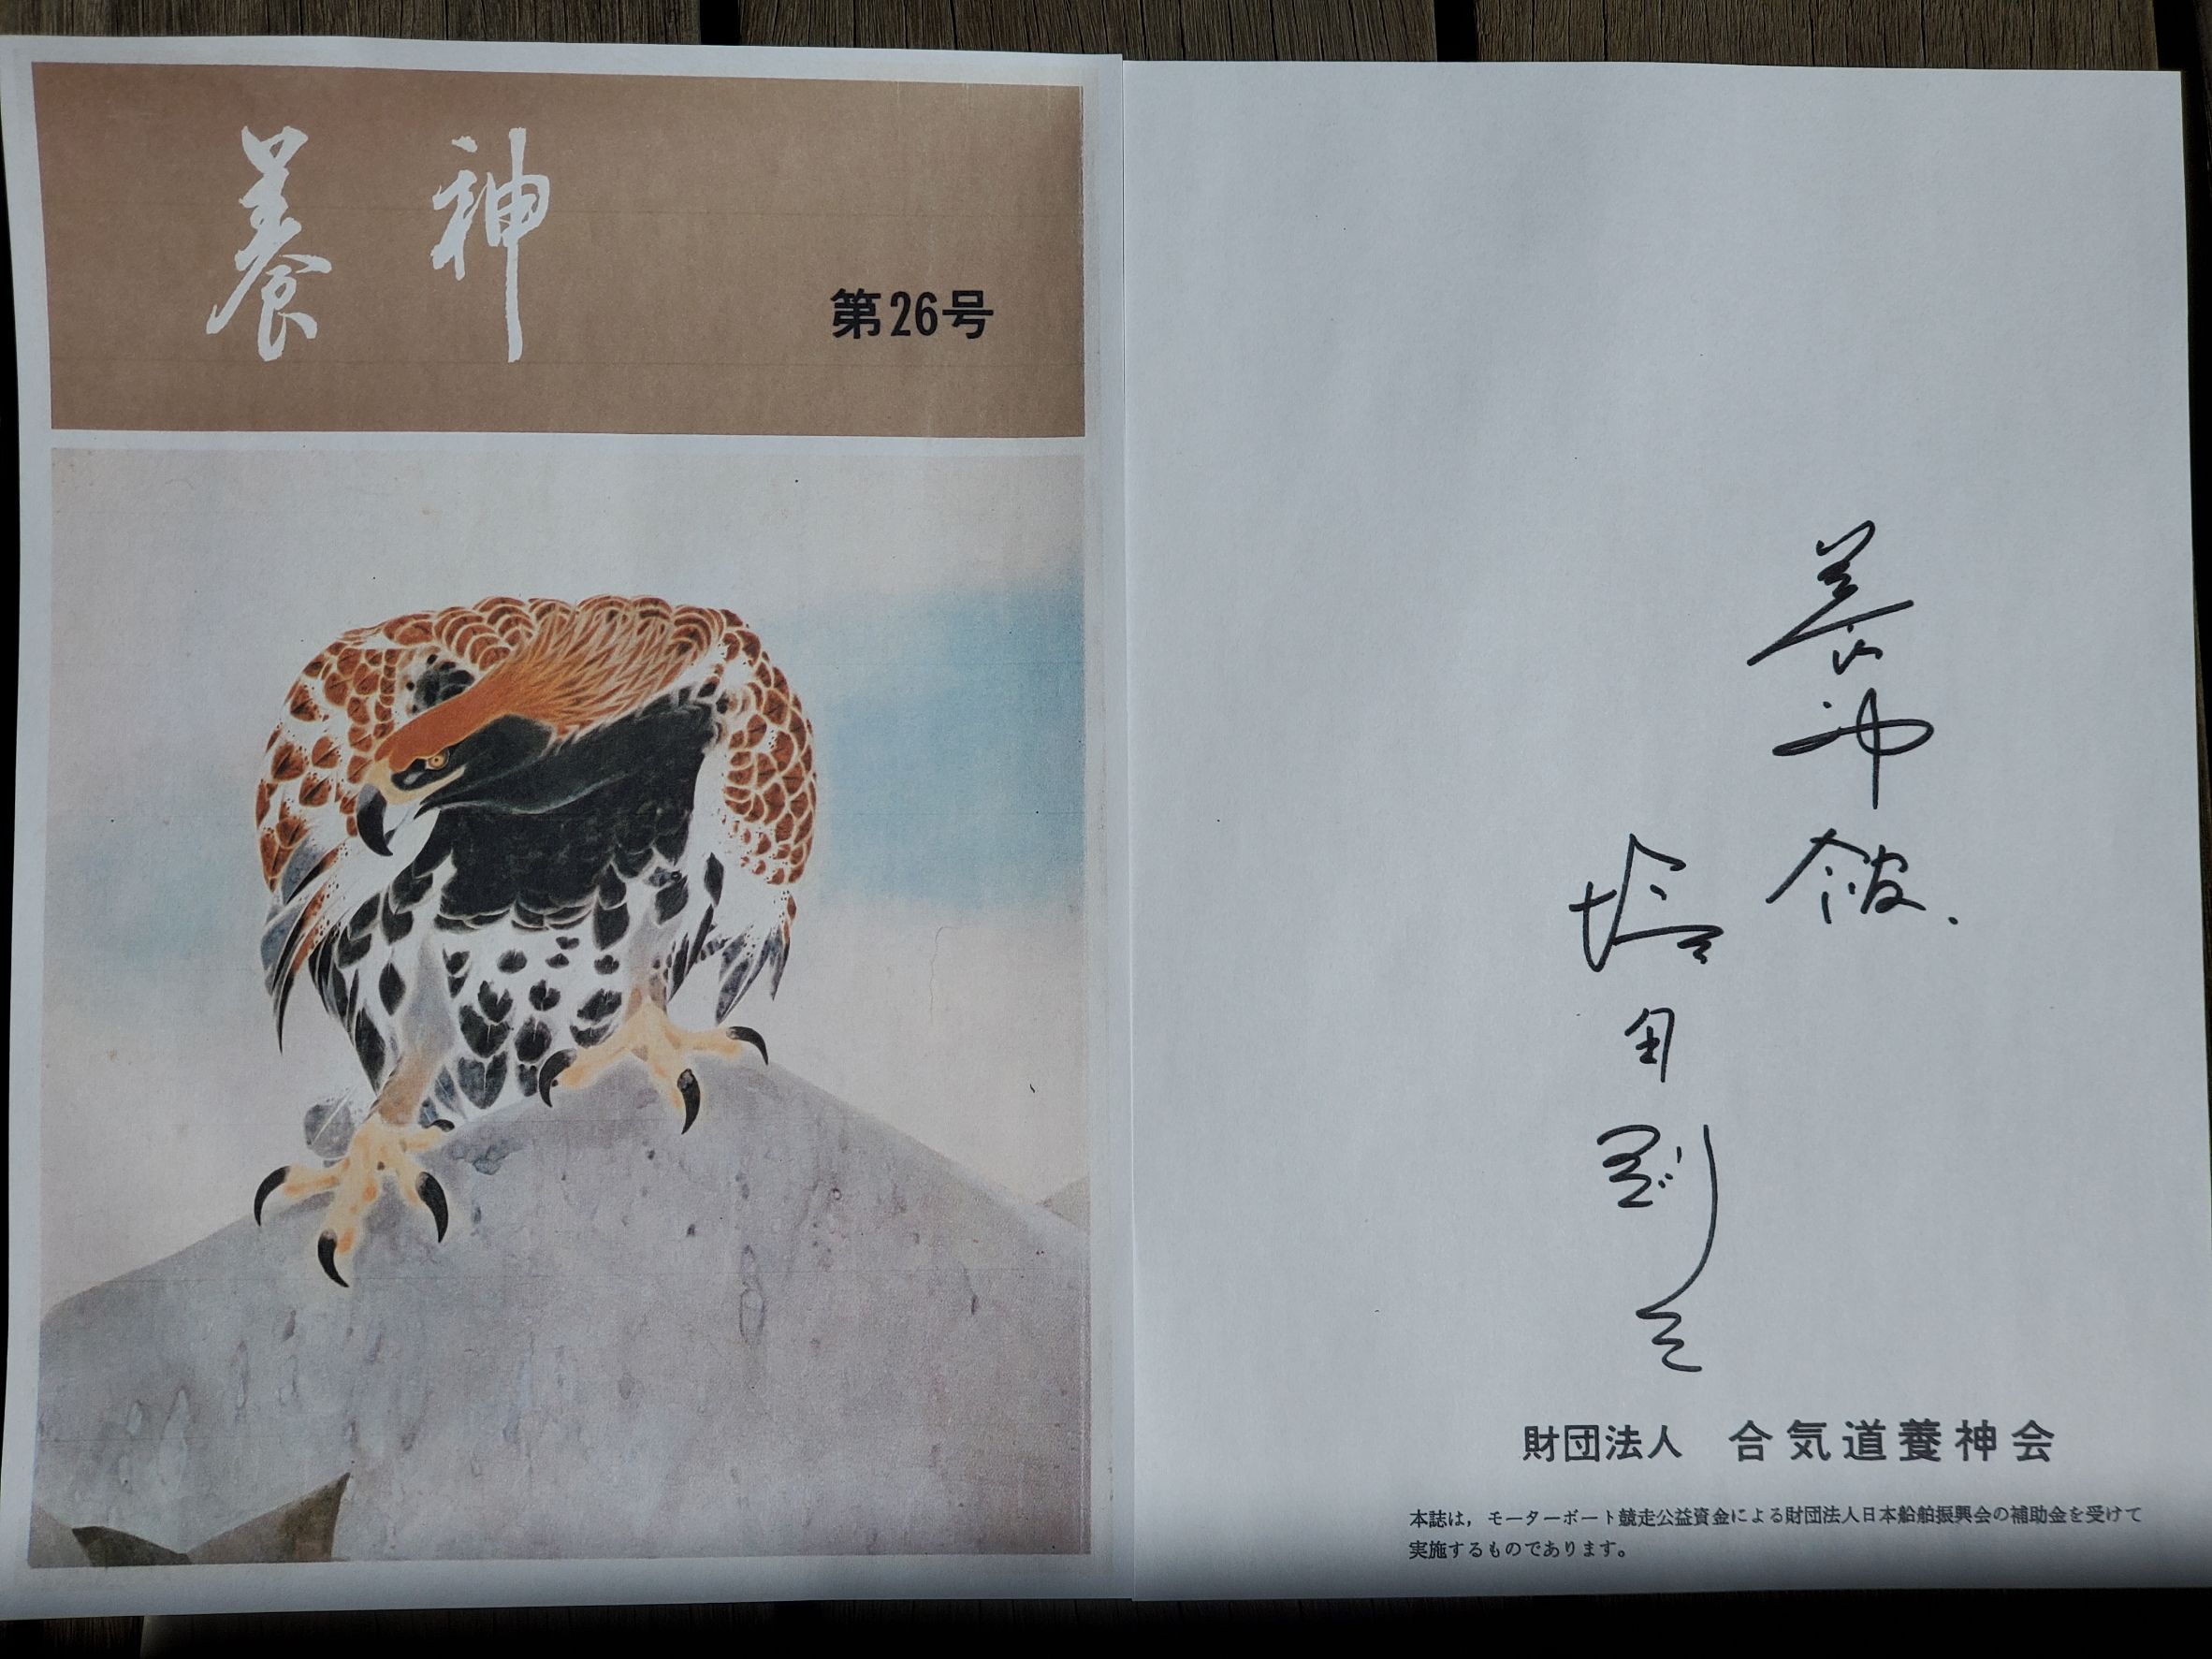 養神
第26号
養神館.
塩田剛三
財団法人 合気道養神会
本誌は，モーターボート競走公益資金による財団法人日本船舶振興会の補助金を受けて
実施するものであります。